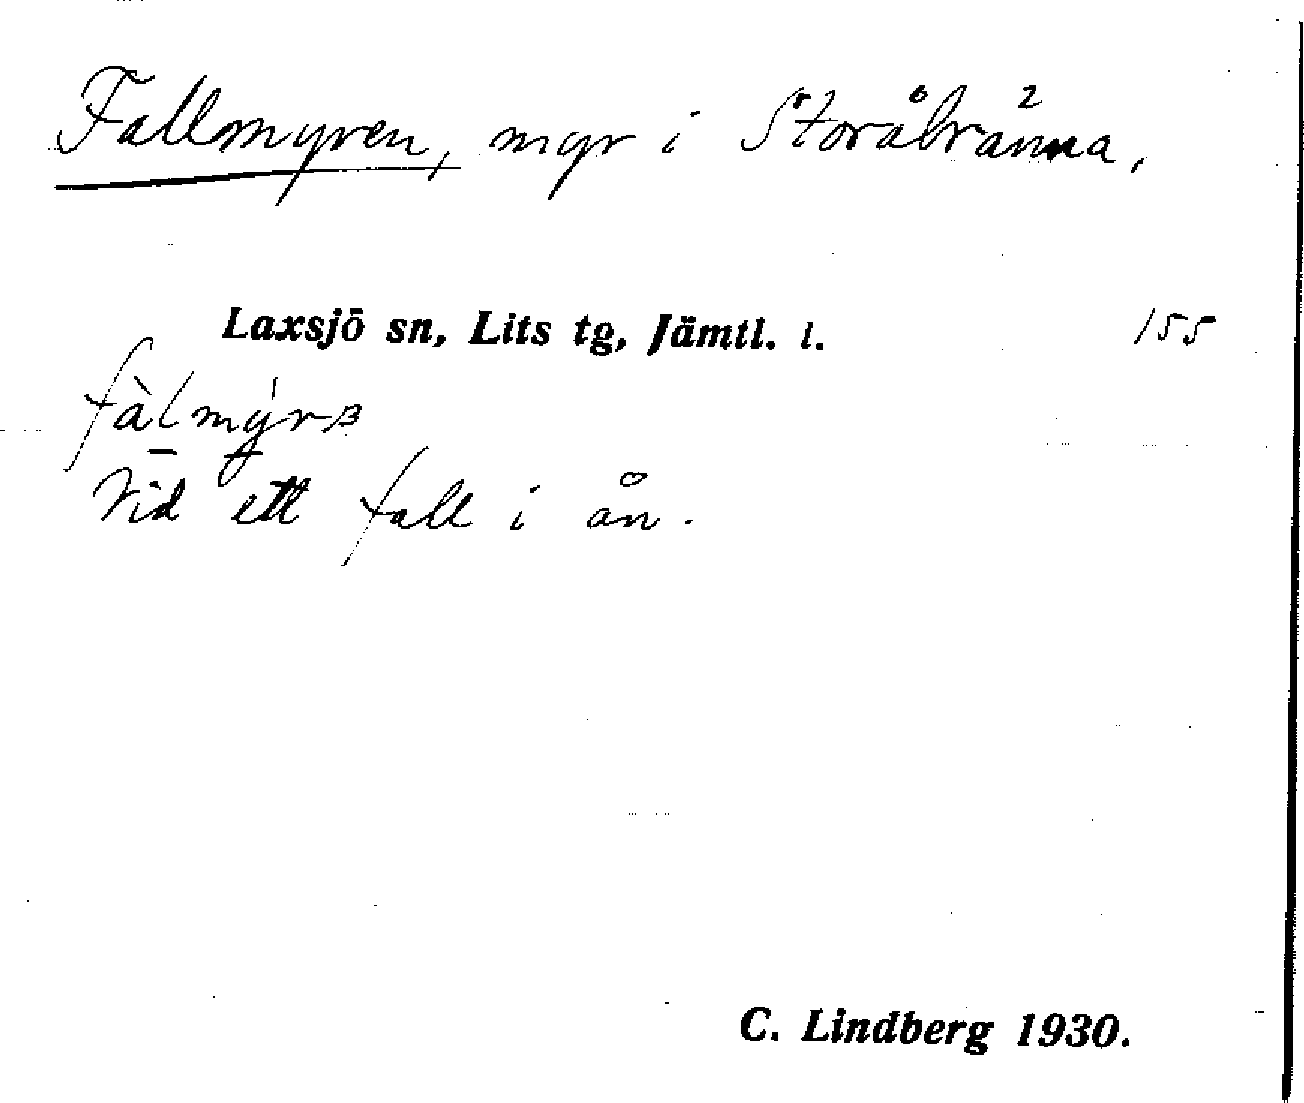 Fallmyren, myr i Storåbränna,
Laxsjö sn, Lits tg, Jämtl. l. 155
fàlmýrɜ
Vid ett fall i ån.
C. Lindberg 1930.